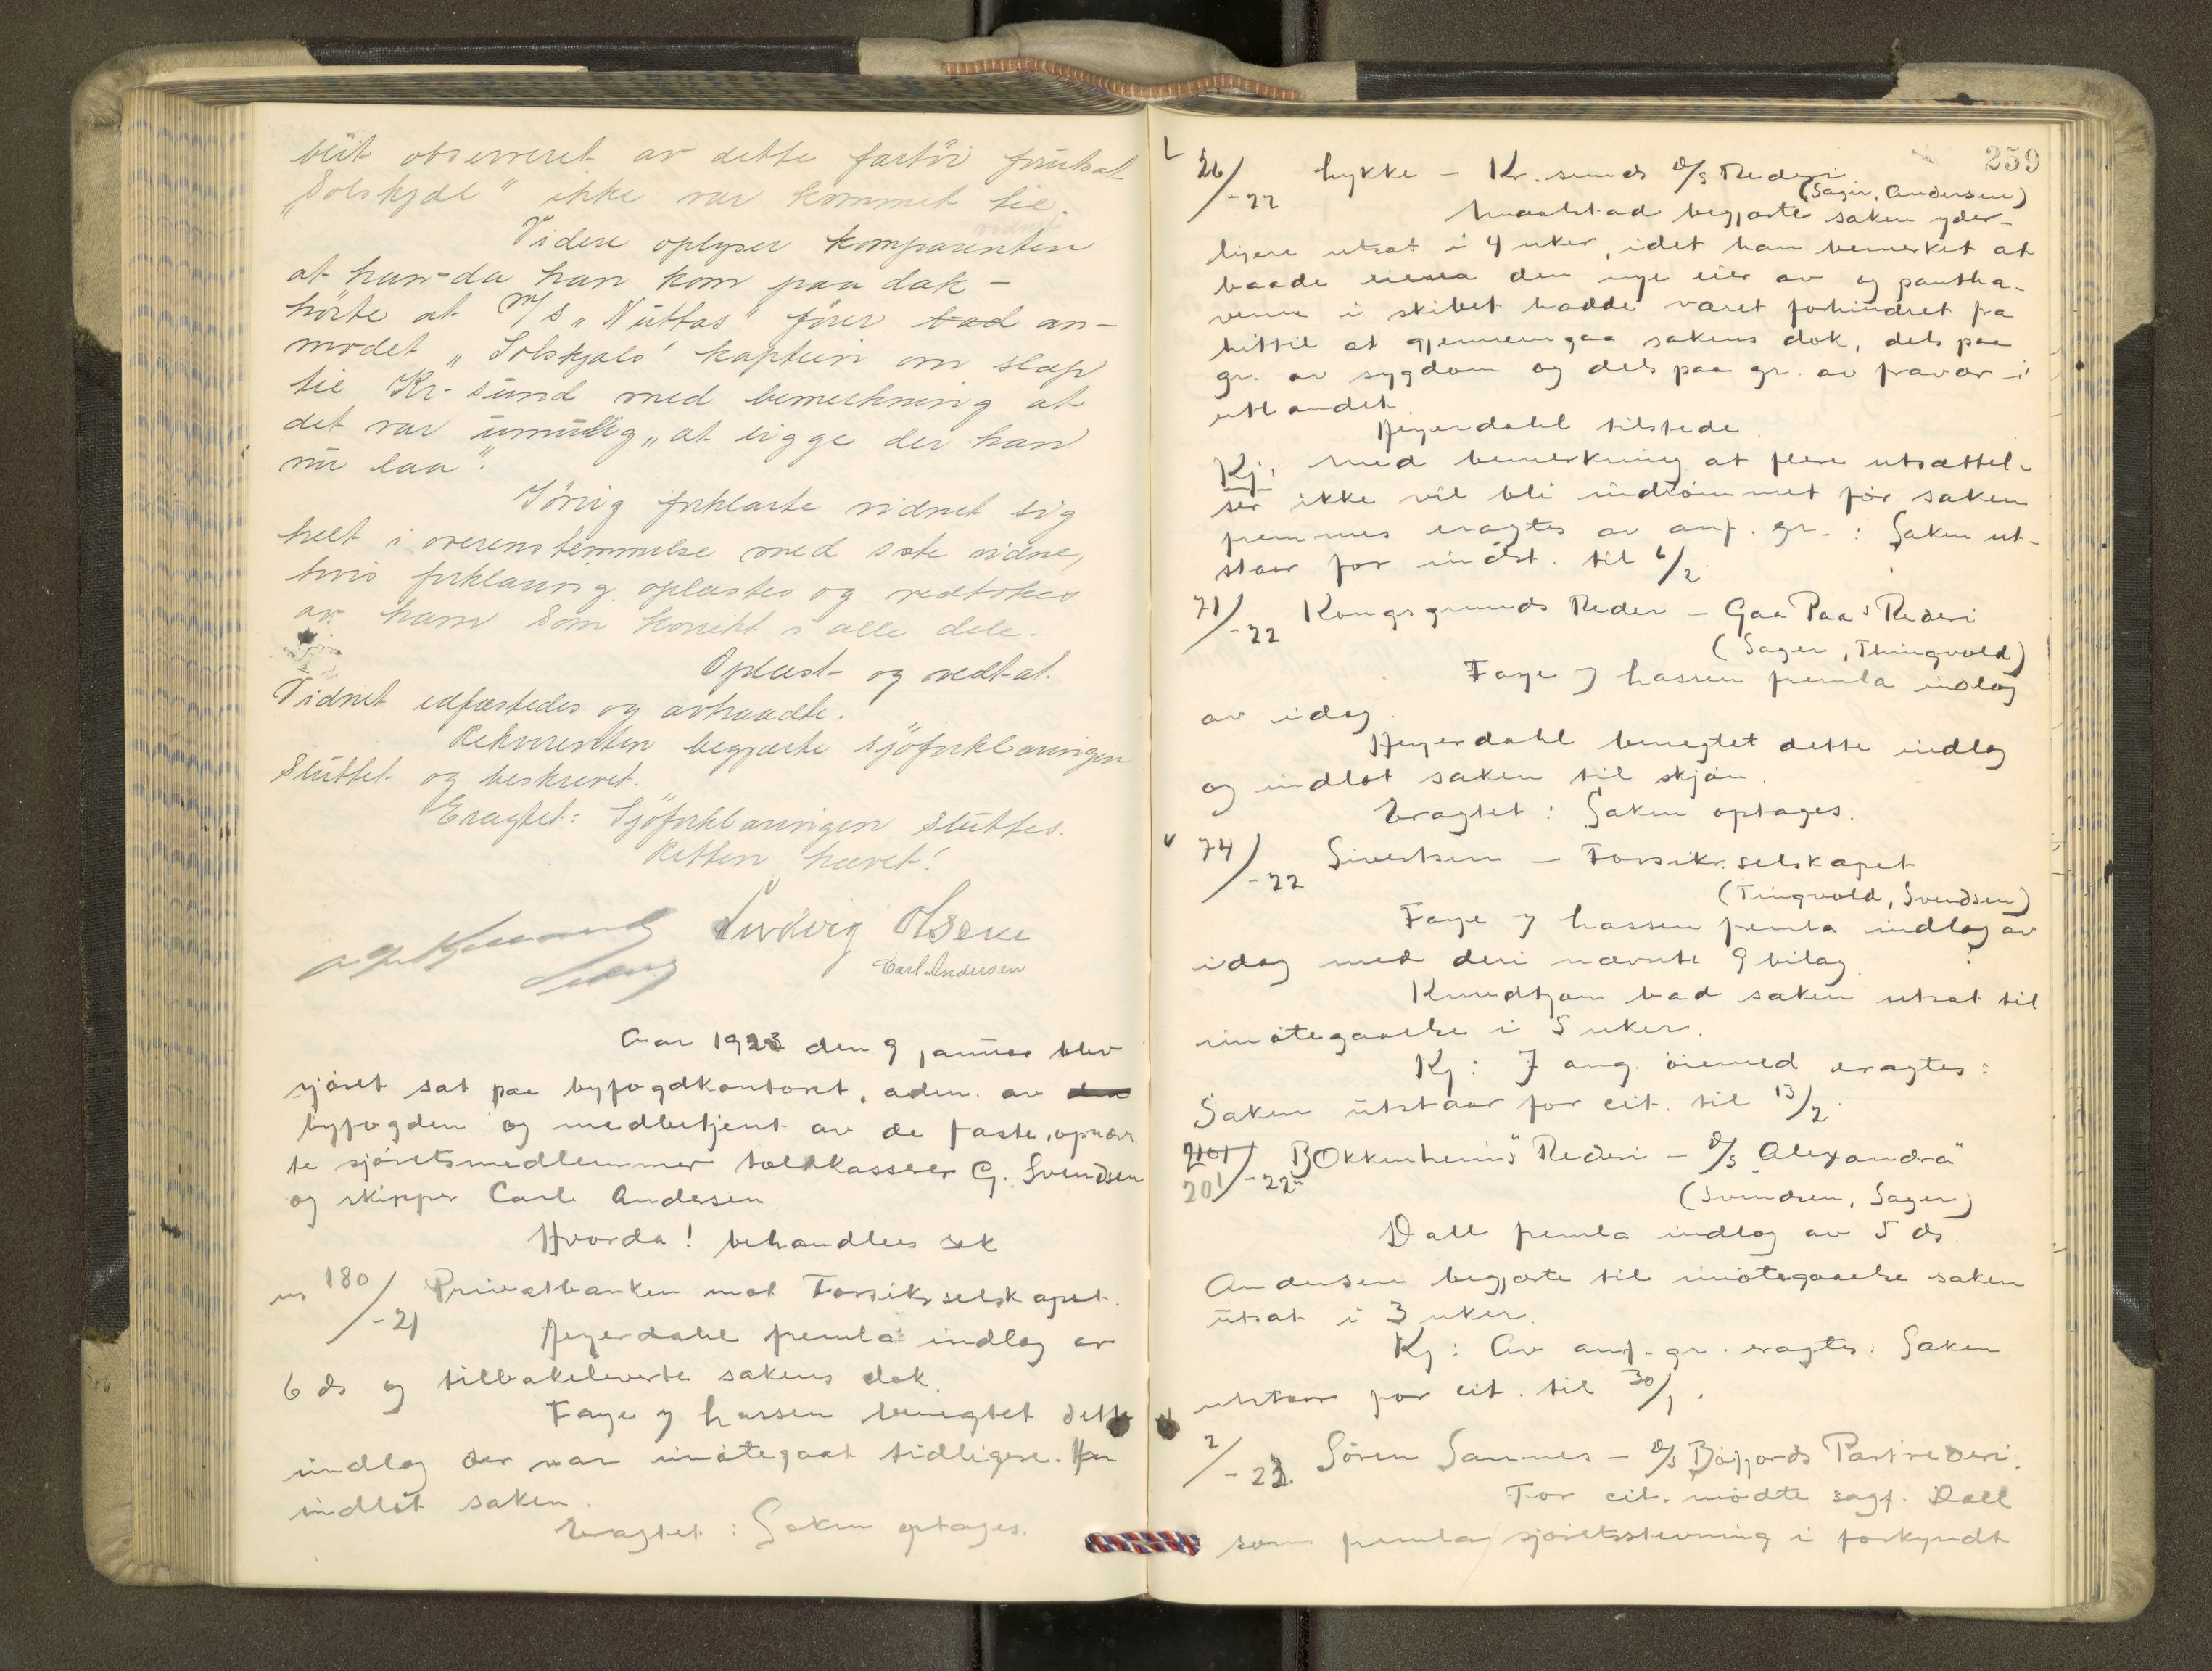 blit observeret av dette fartöi forutsat
"Solskjæl" ikke var kommet til.
vidnet
Videre oplyser komparenten
at han - da han kom paa dæk -
hörte at M/S "Nuttas" förer bad an-
modet "Solskjæls" kaptein om slæp
til Kr-sund med bemerkning at
det var umulig "at ligge der han
nu laa".
Törrig forklarte vidnet sig
helt i overenstemmelse med sste vidne,
hvis forklaring oplæstes og vedtokes
av ham som korrekt i alle dele.
Oplæst og vedtat.
Vidnet edfæstedes og avtraadte.
Rekvirenten begjærte sjöforklaringen
sluttet og beskrevet.
Eragtet: Sjöforklaringen sluttes.
Retten hævet!
Ludvig Olsen
Carl Andersen
Aar 1923 den 9 januar blev
sjöret sat paa byfogdkontoret, adm. av
byfogden og medbetjent av de faste, opnævn
te sjöretsmedlemmer toldkasserer G. Svendsen
og skipper Carl Andersen
Hvorda! behandles sak
nr 180/-21 Privatbanken mot Forsikr.selskapet.
Heyerdahl fremla indlæg av
6 ds og tilbakeleverte sakens dok.
Faye f Lassen benegtet dette
indlæg der var imötegaat tidligere. Han
indlot saken.
Eragtet: Saken optages.
259
26/-22 Lykke - Kr.sunds D/S Rederi
(Sager, Andersen)
Knudtzon begjærte saken yder-
ligere utsat i 4 uker, idet han bemerket at
baade den nye eier av og pantha-
verne i skibet hadde været forhindret fra
hittil at gjennemgaa sakens dok, dels paa
gr. av sygdom og dels paa gr. av fravær i
utlandet.
Heyerdahl tilstede.
Kj: Med bemerkning at flere utsættel-
ser ikke vil bli indrömmet för saken
fremmes eragtes av anf. gr.: Saken ut-
staar for indst. til 6/2.
71/-22 Kongsgrunds Reder - Gaa Paa's Rederi
(Sager, Thingvold)
Faye f Lassen fremla indlæg
av idag.
Heyerdahl benegtet dette indlæg
og indlot saken til skjön.
Eragtet: Saken optages.
74/-22 Sivertsen - Forsikr.selskapet
(Tingvold, Svendsen)
Faye f Lassen fremla indlæg av
idag med deri nævnte 9 bilag.
Knudtzon bad saken utsat til
imötegaaelse i 5 uker.
Kj: I ang. öiemed eragtes:
Saken utstaar for cit. til 13/2.
201/-22 "Bokkenheim's" Rederi - D/S "Alexandra"
201
(Svendsen, Sager)
Dall fremla indlæg av 5 ds.
Andersen begjærte til imötegaaelse saken
utsat i 3 uker.
Kj: Av anf. gr. eragtes: Saken
utstaar for cit. til 30/1.
2/-23. Sören Sannes - D/S Böfjords Partrederi.
For cit. mödte sagf. Dall
som fremla sjöretsstevning i forkyndt